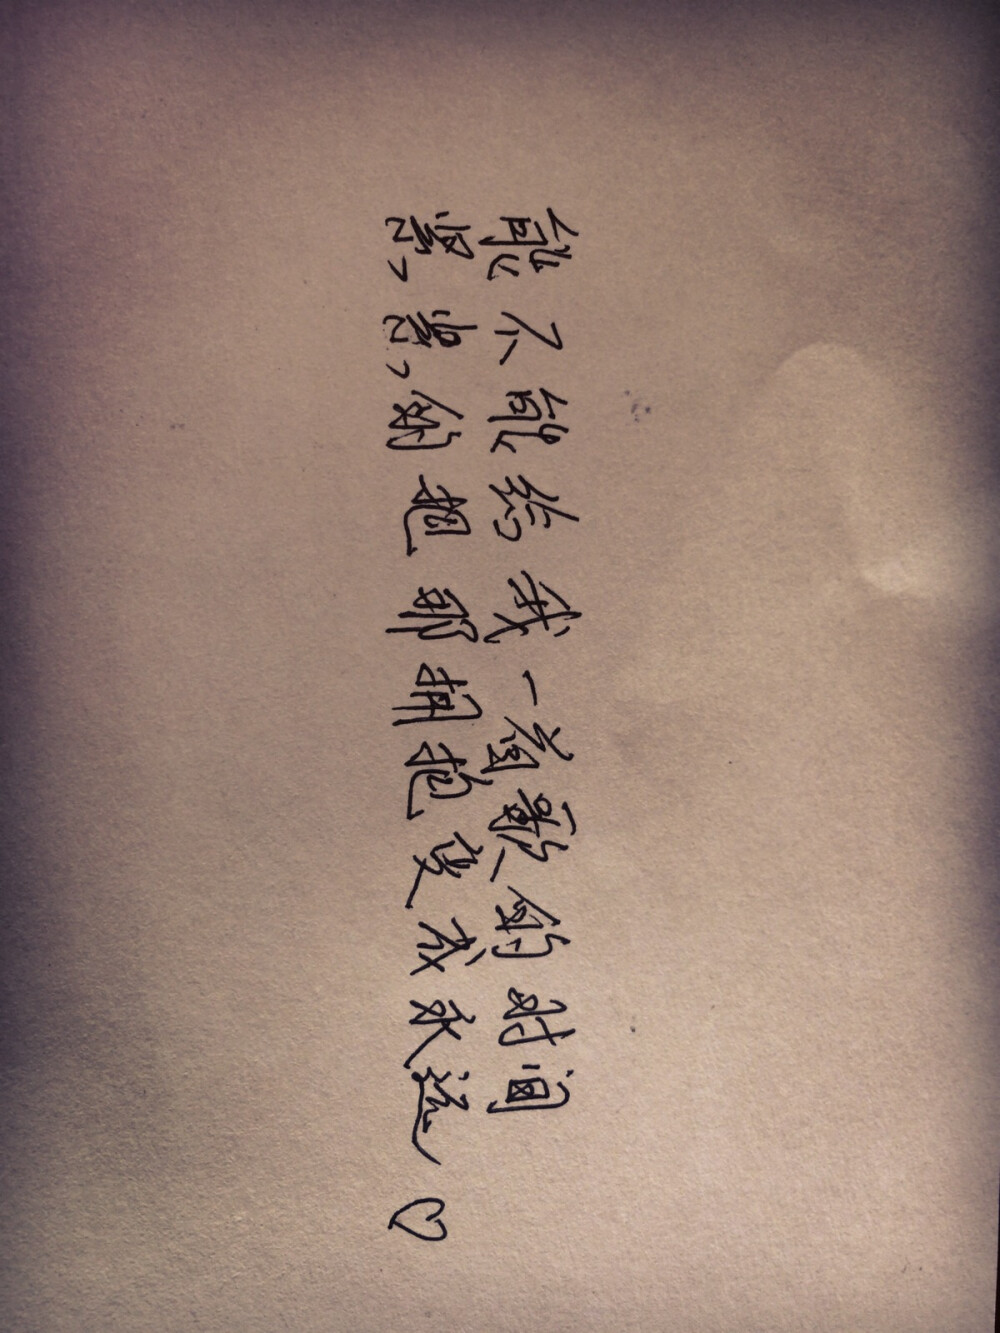 能不能给我一首歌的时间
紧紧的把那拥抱变成永远♡